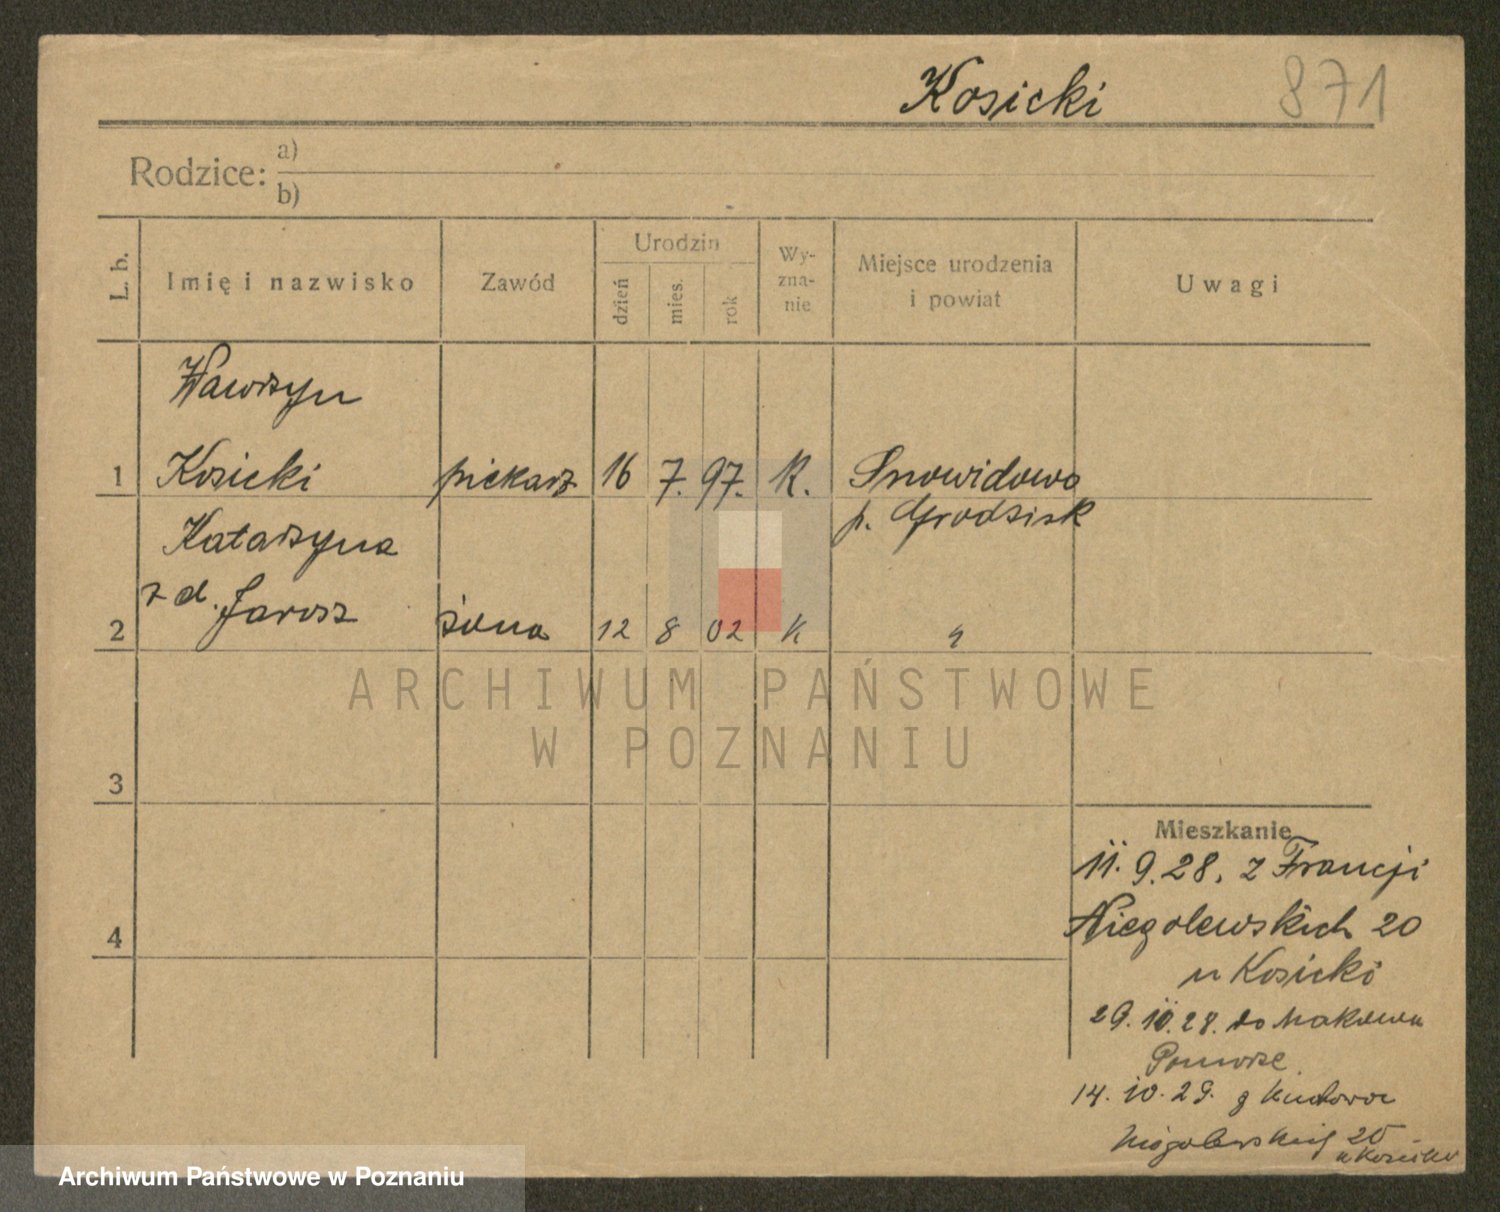 Kosicki 871
Rodzice: a)
b)
L. b.
Imię i nazwisko
Zawód
Urodzin
dzień
mies.
rok
Wy-
zna-
nie
Miejsce urodzenia
i powiat
Uwagi
Wawrzyn
1 Kosicki piekarz 16 7. 97. K. Snowidowo
p. Grodzisk
Katarzyna
z d. Jarosz
2 żona 12 8 02 K "
ARCHIWUM PAŃSTWOWE
W POZNANIU
3
4
Mieszkanie
11. 9. 28. z Francji
Niegolewskich 20
u Kosicki
29. 10. 28. do
Pomorze
14. 10. 29. z
20
u Kosicki
Archiwum Państwowe w Poznaniu